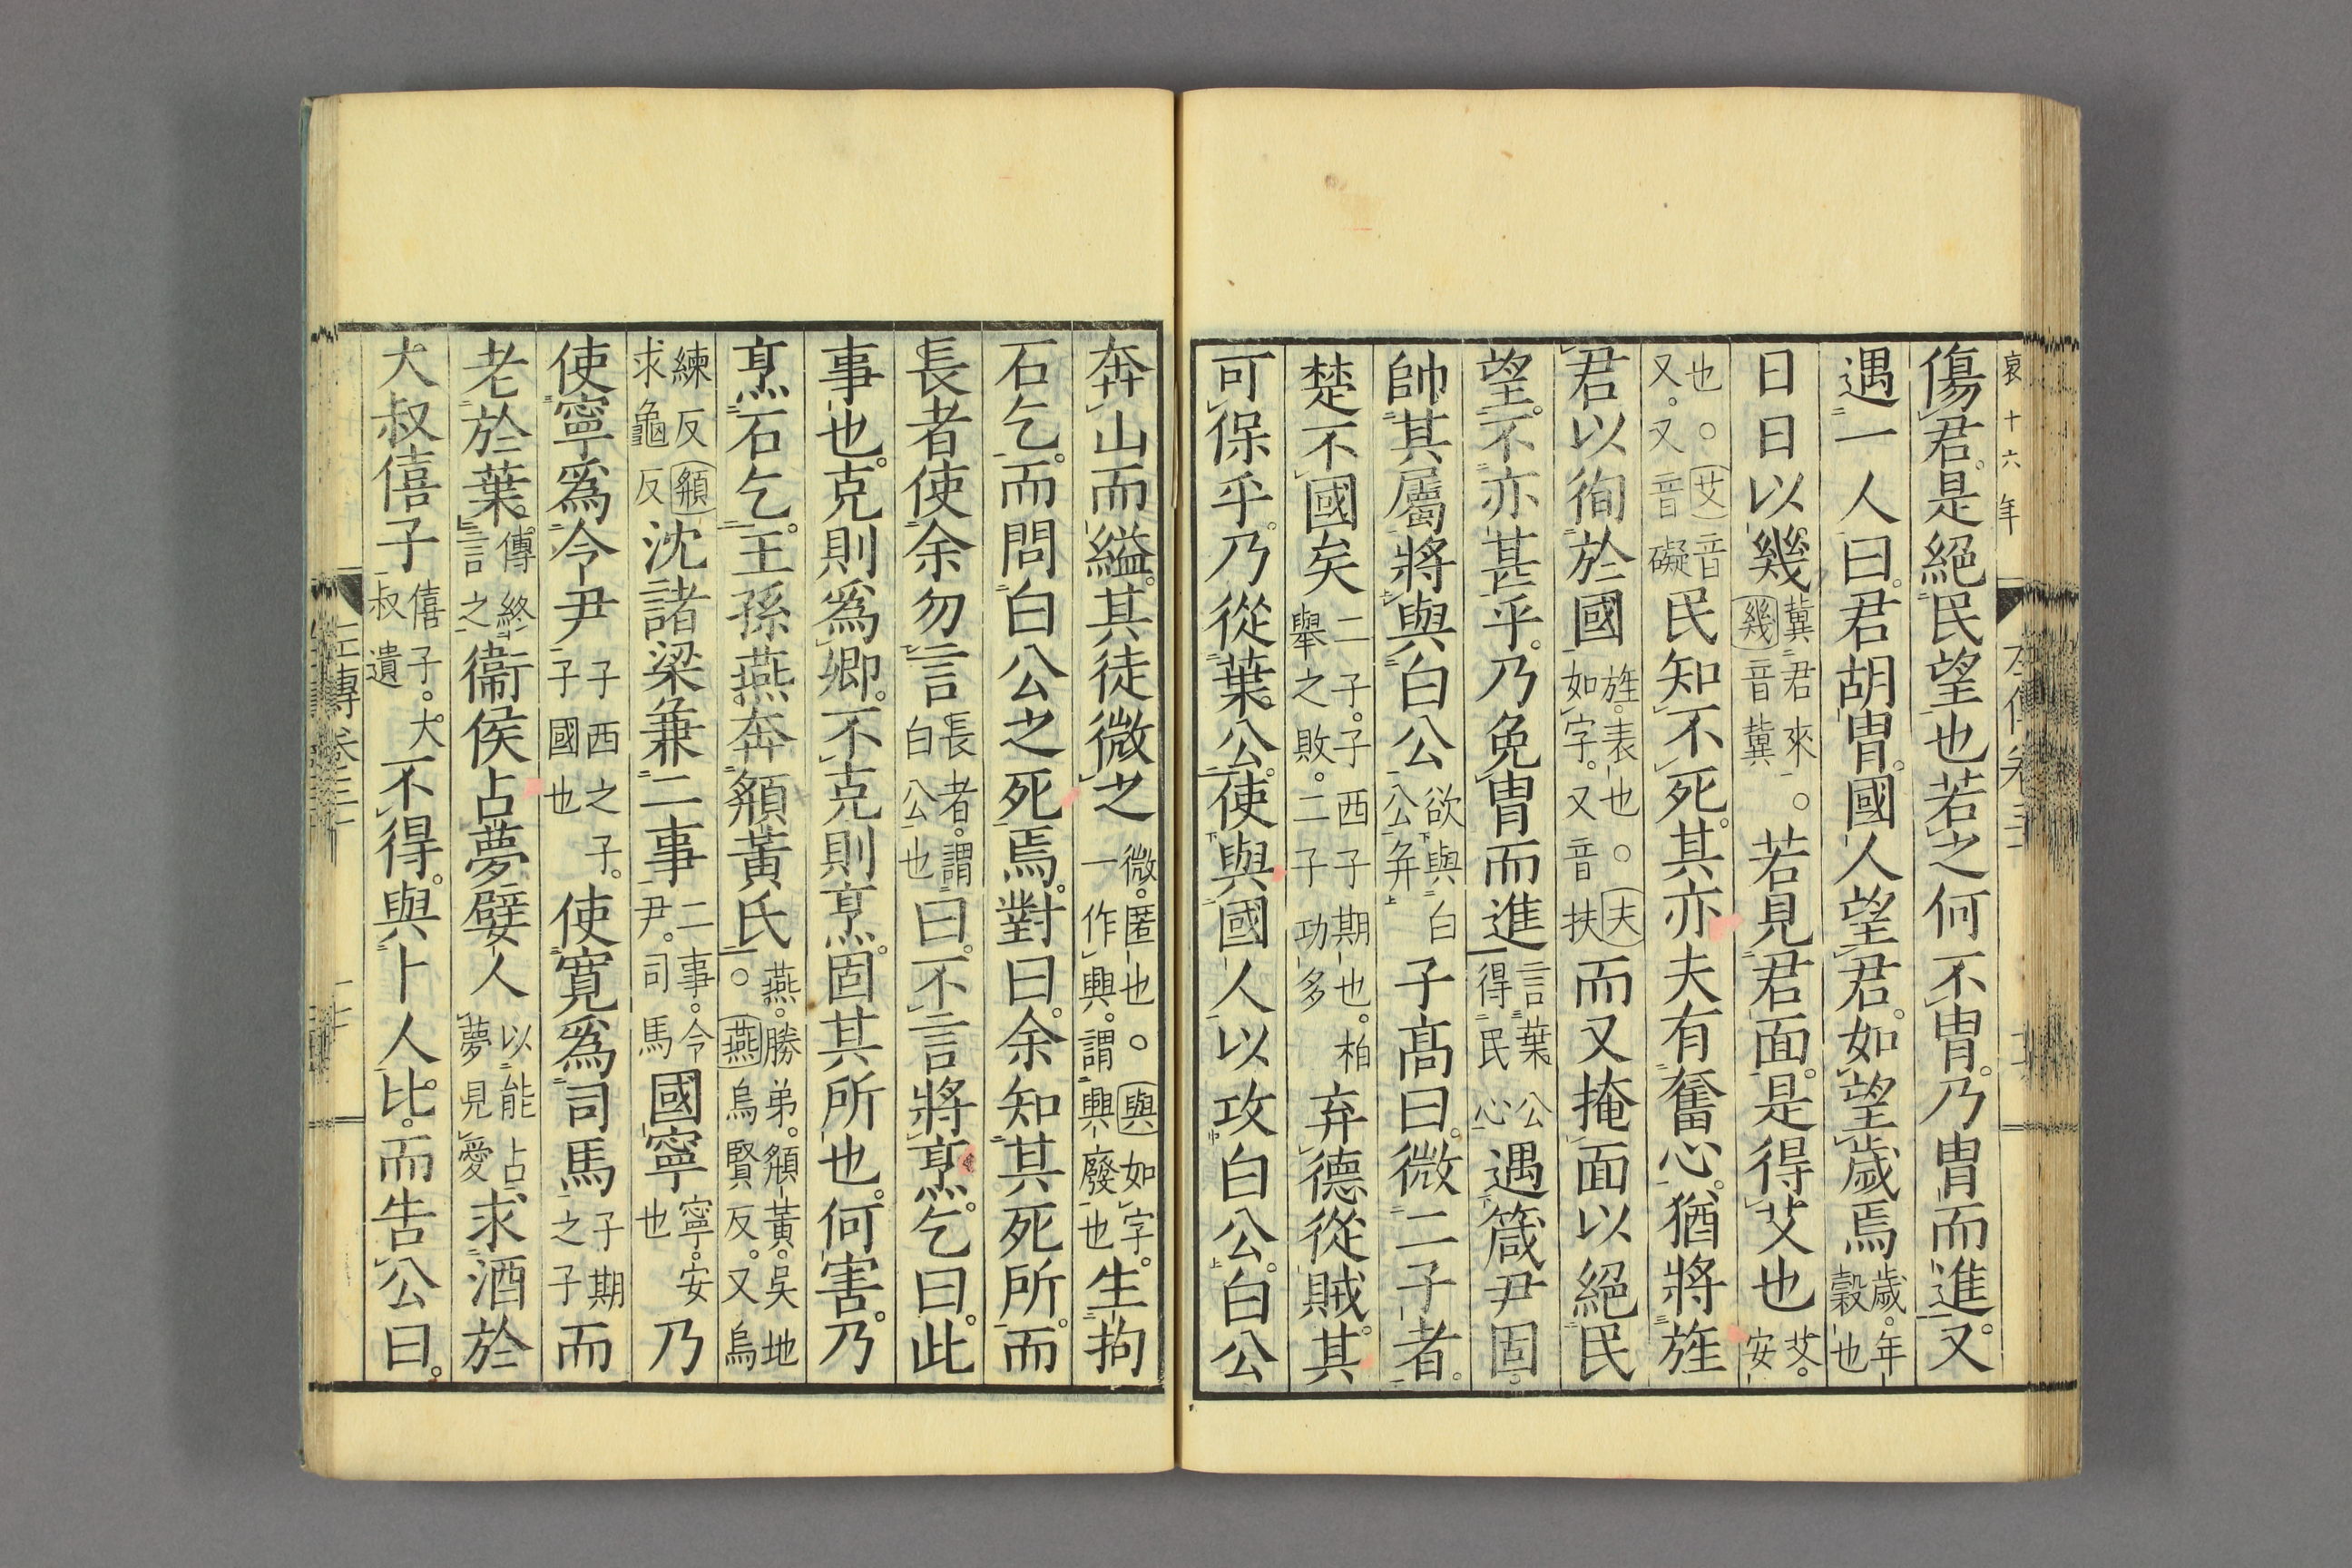 哀十六年
左傳卷三十
傷君。是絕民望也若之何不冑。乃冑而進。又
遇一人曰。君胡冑。國人望君。如望歲焉歲。年穀也
日日以幾冀君來。○幾音冀若見君面。是得艾也艾。安
也。○艾音乂。又音礙民知不死。其亦夫有奮心。猶將旌
君以徇於國旌。表也○夫如字。又音扶而又掩面以絕民
望。不亦甚乎。乃免冑而進言葉公得民心遇箴尹固。
帥其屬將與白公欲與白公并子高曰。微二子者。
楚不國矣二子。子西子期也。柏舉之敗。二子功多弃德從賊。其
可保乎。乃從葉。公。使與國人以攻白公。白公
奔山而縊。其徒微之微。匿也。○與如字。一作興。謂興廢也生拘
石乞。而問白公之死焉。對曰。余知其死所。而
長者使余勿言長者。謂白公也曰。不言將烹。乞曰。此
事也。克則爲卿。不克則烹。固其所也。何害。乃
烹石乞。王孫燕奔頯黃氏○燕。勝弟。頯黃。吳地燕烏賢反。又烏
練反頯求龜反沈諸梁兼二事二事。令尹。司馬國寧寧。安也乃
使寧爲令尹子西之子。子國也使寬爲司馬子期之子而
老於葉。傳終言之衞侯占夢嬖人以能占夢見愛求酒於
大叔僖子僖子。大叔遺不得。與卜人比。而告公曰。
左傳卷三十